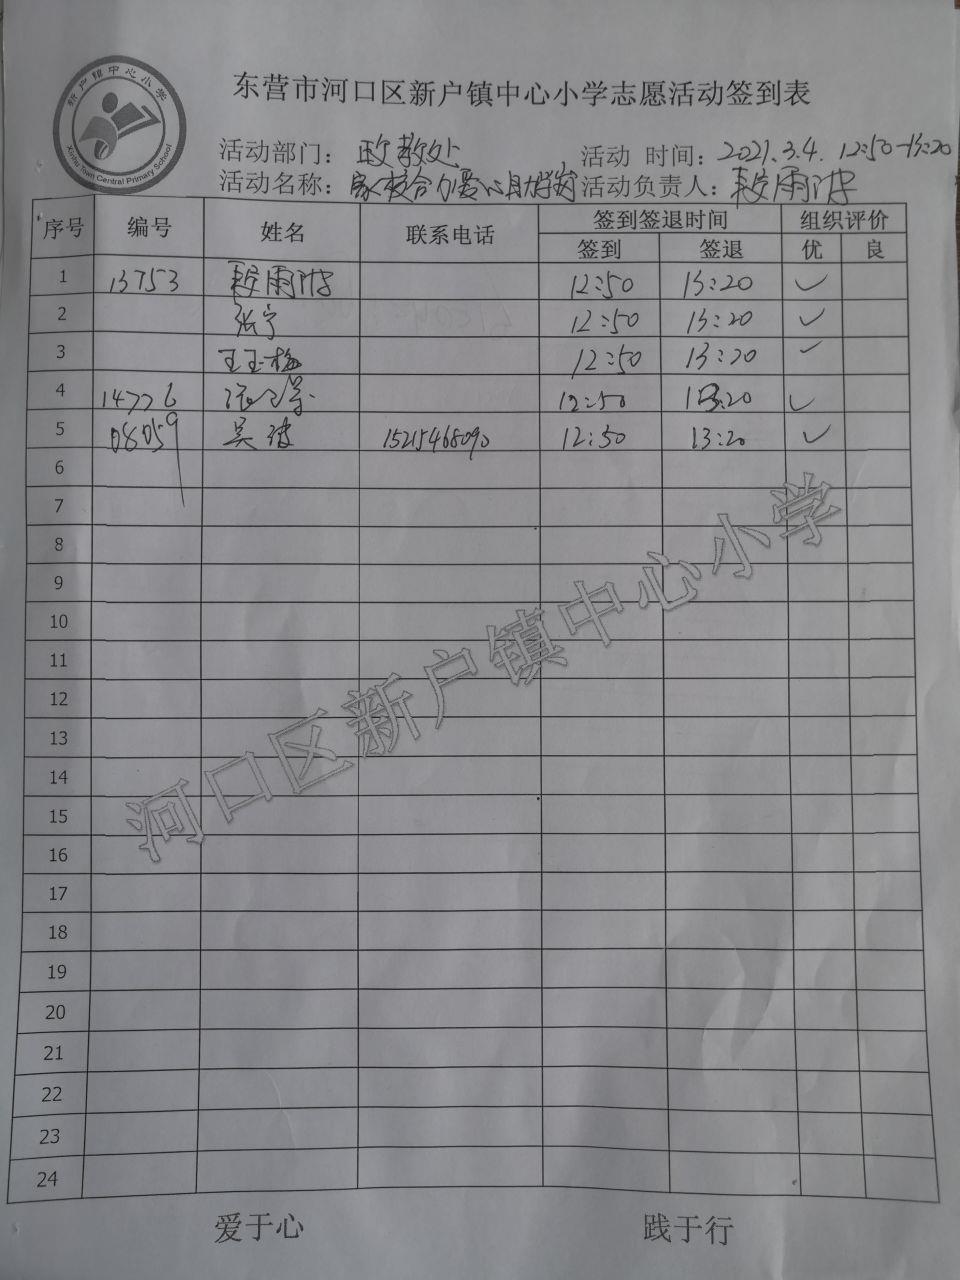 新户镇中心小学
Xinhu Town Central Primary School
东营市河口区新户镇中心小学志愿活动签到表
活动部门： 政教处 活动 时间：2021.3.4. 12:50-13:20
活动名称：家校合力爱心助学 活动负责人：
序号 编号 姓名 联系电话 签到签退时间 组织评价
签到 签退 优 良
1 13753 12:50 13:20 ✓
2 张宁 12:50 13:20 ✓
3 王玉梅 12:50 13:20 ✓
4 14776 12:50 13:20 ✓
5 08059 吴 15215468090 12:50 13:20 ✓
6
7
8
9
10
11
12
13
14
15
16
17
18
19
20
21
22
23
24
河口区新户镇中心小学
爱于心 践于行